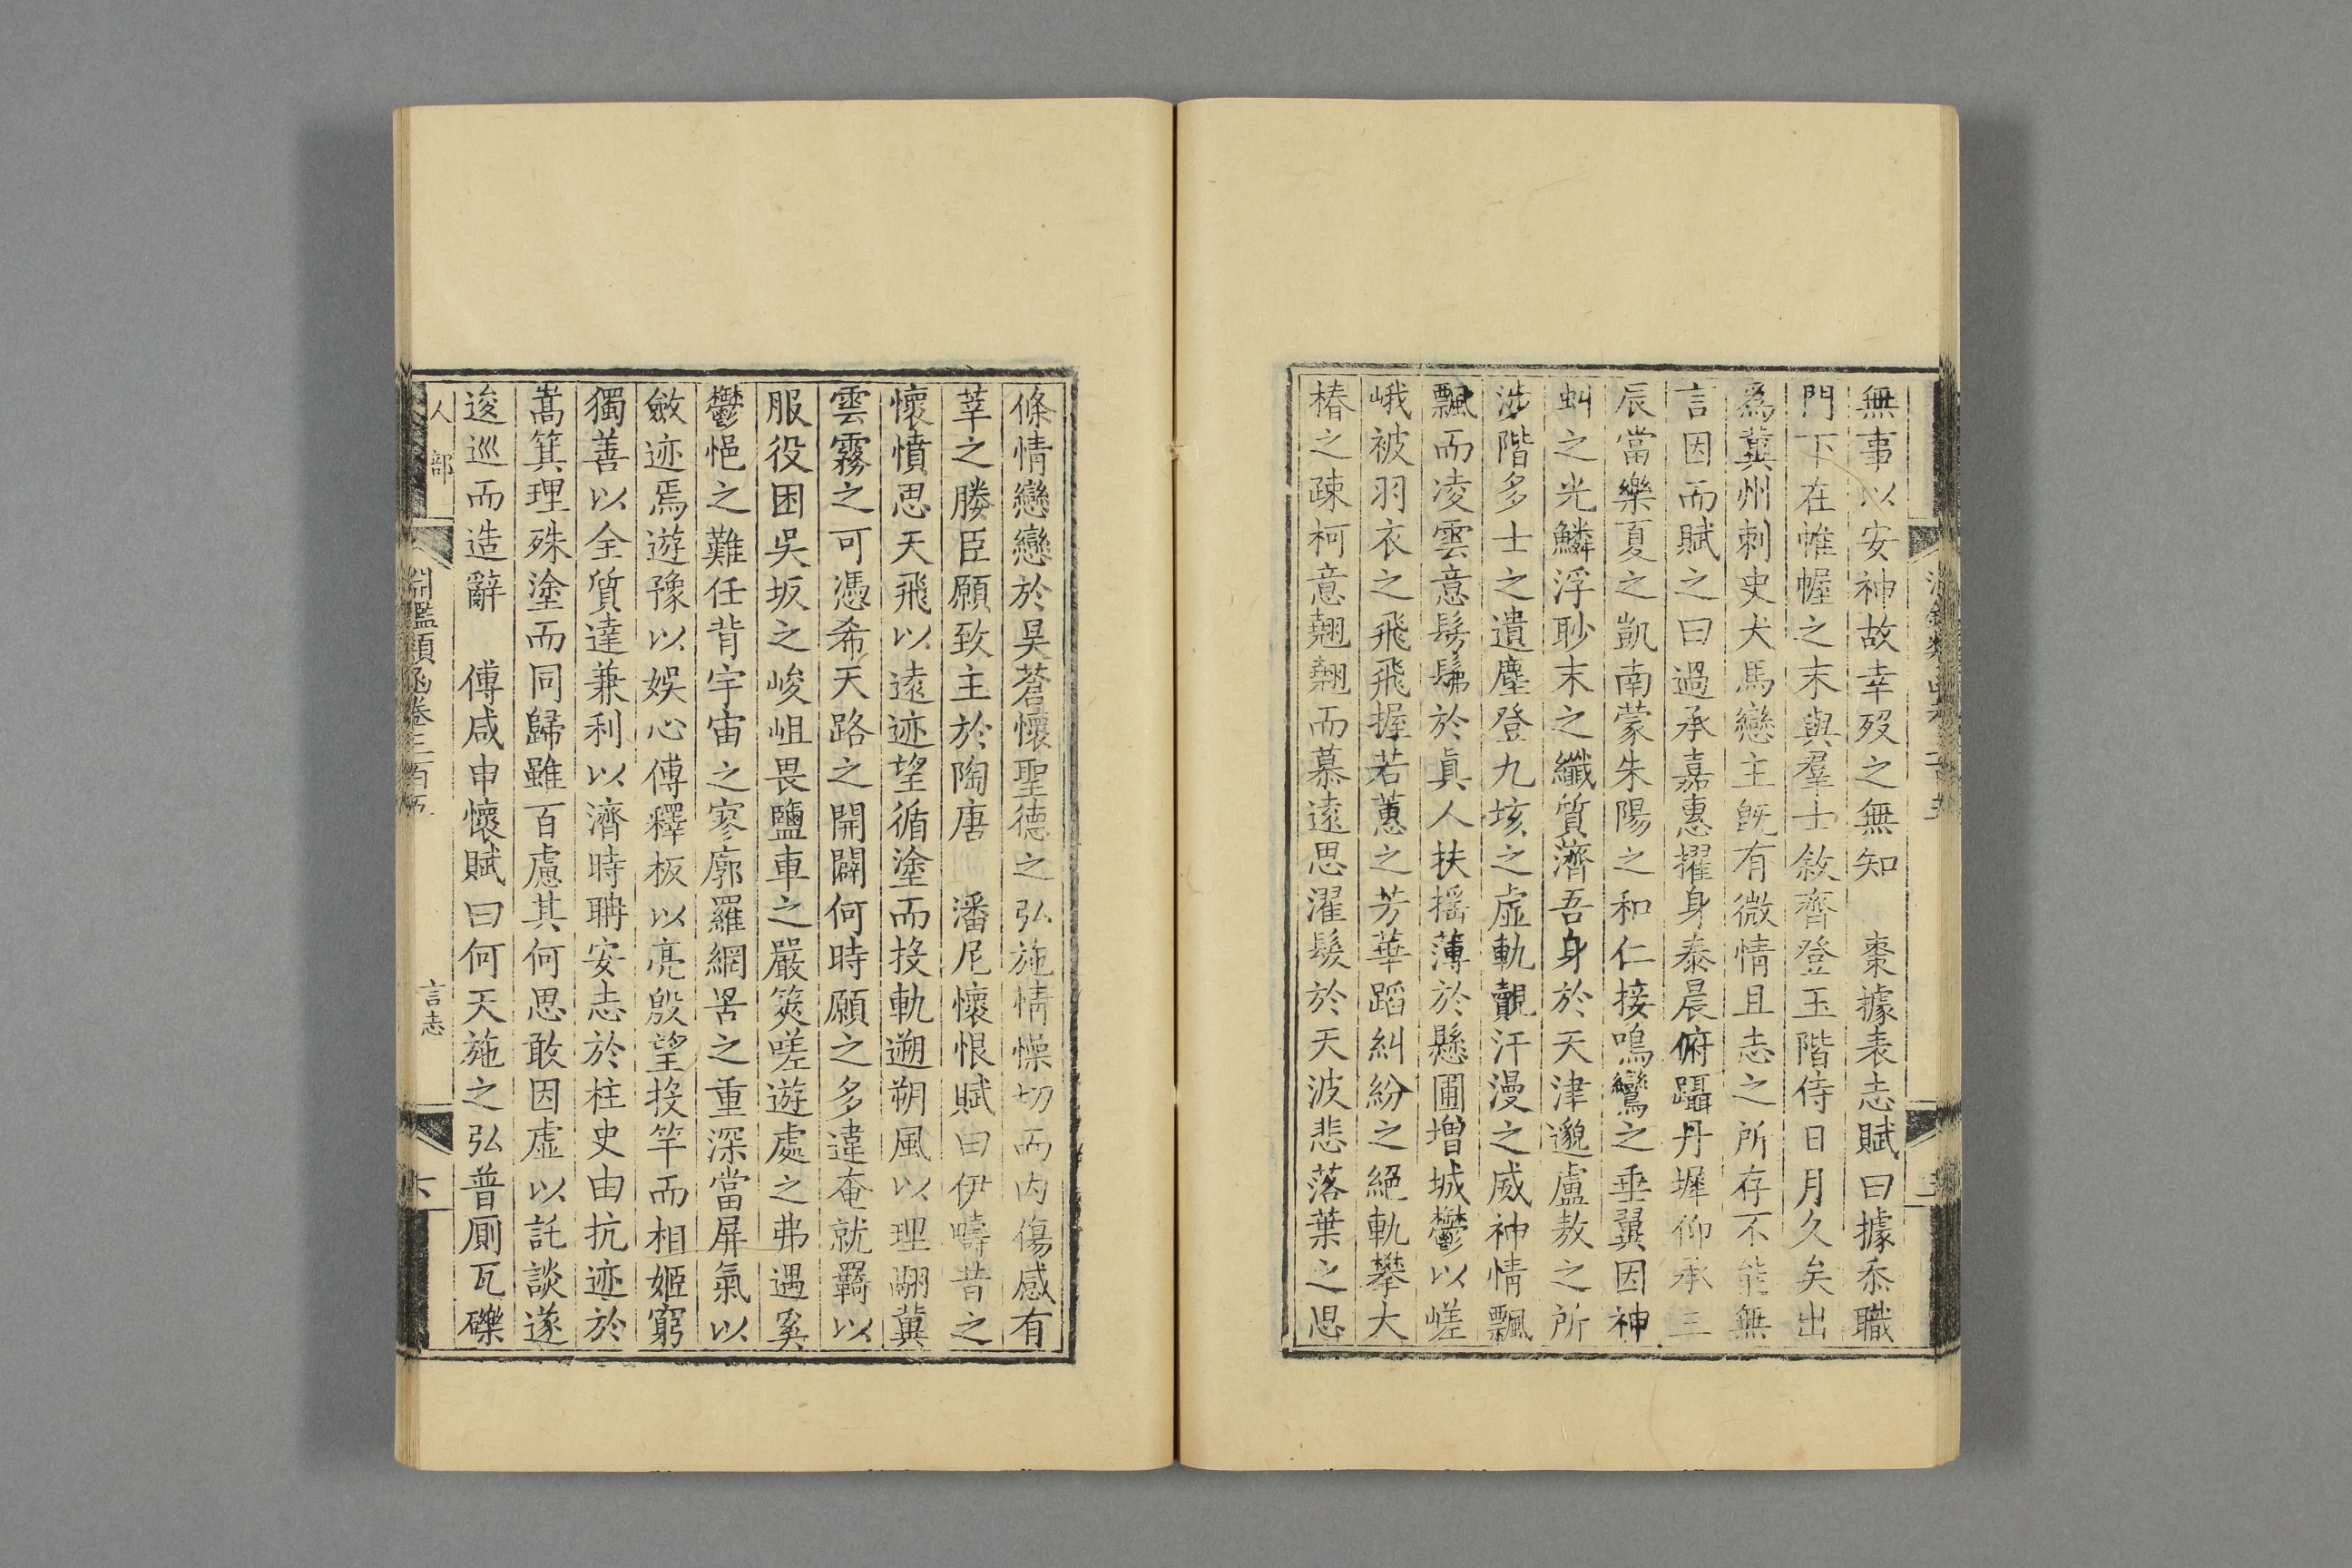 無事以安神故幸歿之無知 棗據表志賦曰據忝職
門下在帷幄之末與羣士敘齊登玉階侍日月久矣出
爲冀州刺史犬馬戀主旣有微情且志之所存不能無
言因而賦之曰過承嘉惠擢身泰晨俯躡丹墀仰承三
辰當樂夏之凱南蒙朱陽之和仁接鳴鸞之垂翼因神
虯之光鱗浮眇末之纖質濟吾身於天津邈盧敖之所
涉階多士之遺塵登九垓之虛軌覿汗漫之威神情飄
飄而凌雲意髣髴於眞人扶搖薄於懸圃增城鬱以嵯
峨被羽衣之飛飛握若蕙之芳華蹈糾紛之絕軌攀大
椿之疎柯意翹翹而慕遠思濯髮於天波悲落葉之思
條情戀戀於昊蒼懷聖德之弘施情懆切而內傷感有
莘之媵臣願致主於陶唐 潘尼懷恨賦曰伊疇昔之
懷憤思天飛以遠迹望循塗而投軌遡朔風以理翮冀
雲霧之可憑希天路之開闢何時願之多違奄就羈以
服役困吳坂之峻岨畏鹽車之嚴筴嗟遊處之弗遇奚
鬱悒之難任背宇宙之寥廓羅網罟之重深當屏氣以
斂迹焉遊豫以娛心傅釋板以亮殷望投竿而相姬窮
獨善以全質達兼利以濟時聃安志於柱史由抗迹於
嵩箕理殊塗而同歸雖百慮其何思敢因虛以託談遂
逡巡而造辭 傅咸申懷賦曰何天施之弘普厠瓦礫
人部
淵鑑類函卷三百
言志